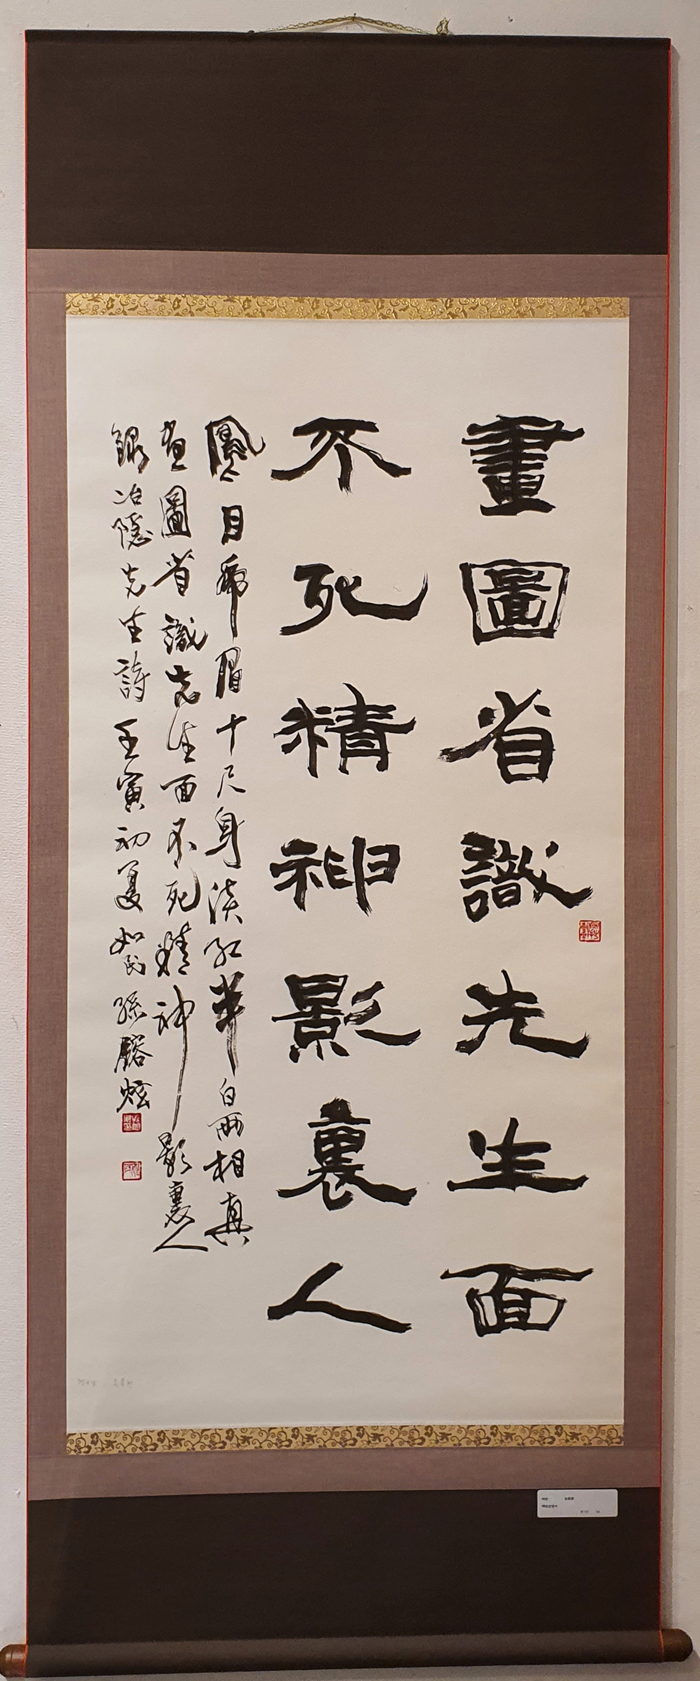 畫圖省識先生面
不死精神影裏人
鳳目脩眉十尺身淡紅華白兩相真
畫圖省識先生面不死精神影裏人
錄冶隱先生詩壬寅初夏如民孫 炫